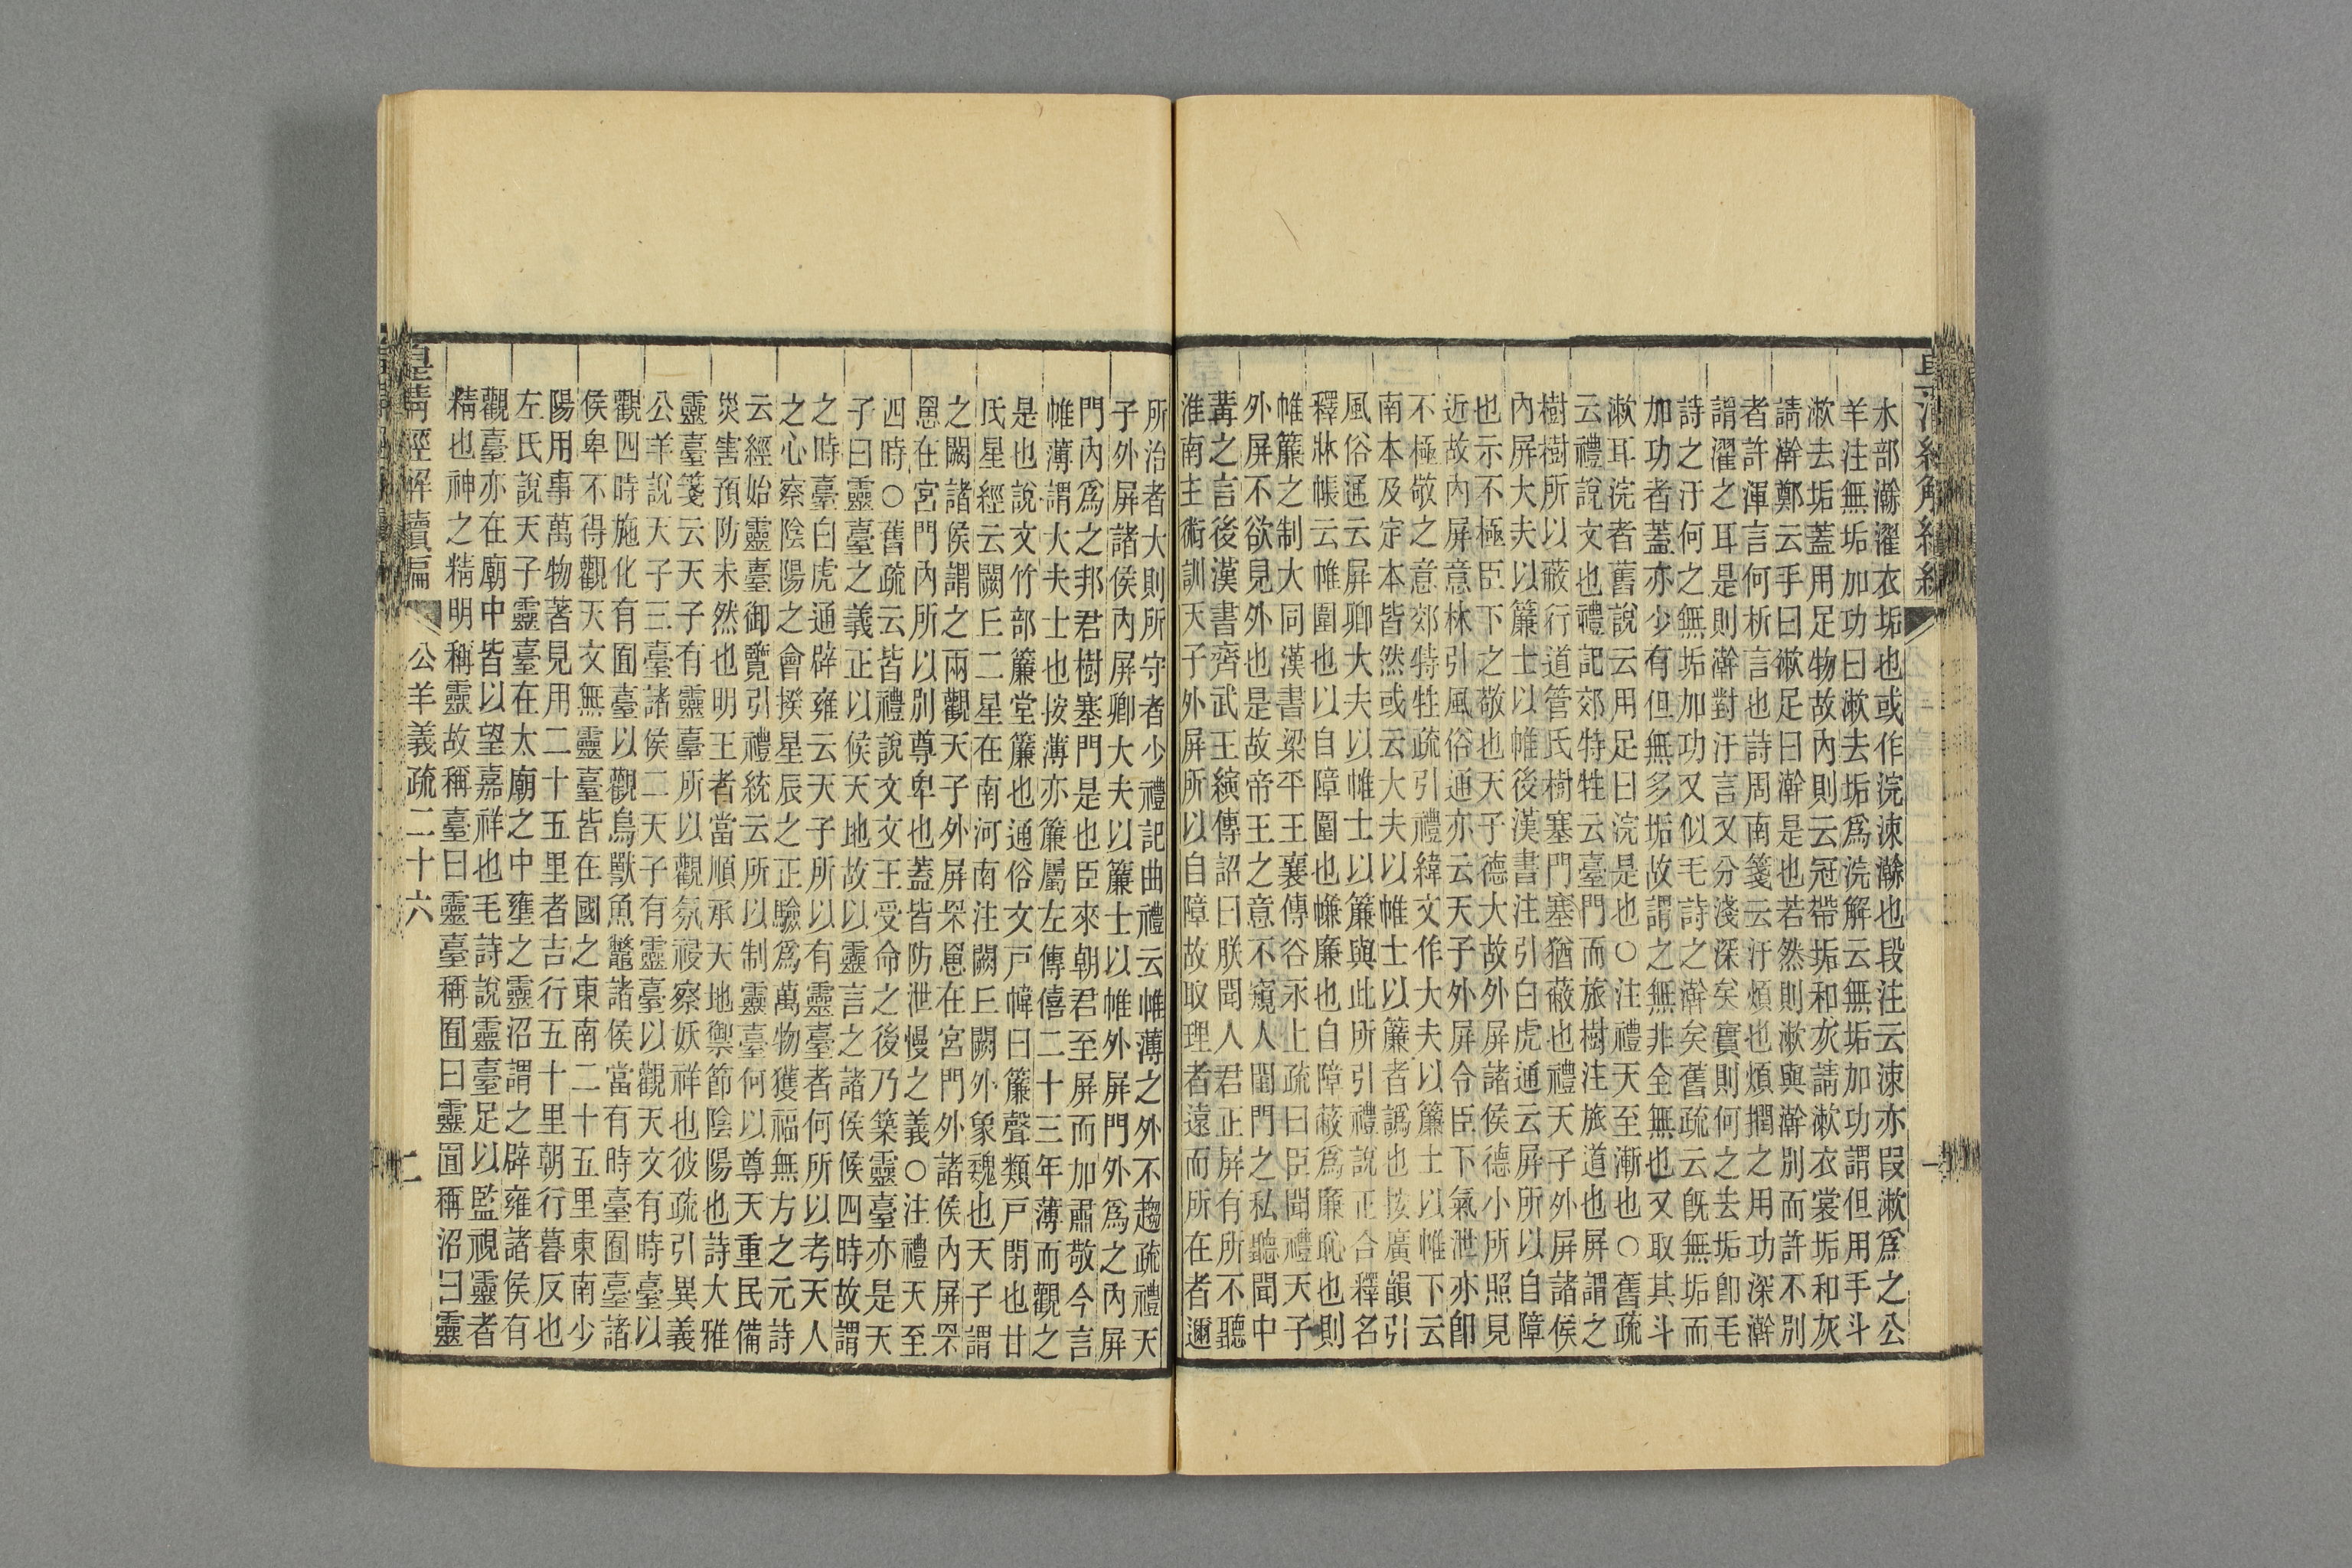 水部瀚濯衣垢也或作浣涑瀚也段注云涑亦叚漱爲之公
羊注無垢加功曰漱去垢爲浣解云無垢加功謂但用手斗
漱去垢蓋用足物故內則云冠帶垢和灰請漱衣裳垢和灰
請澣鄭云手曰漱足曰澣是也若然則漱與澣別而許不別
者許渾言何析言也詩周南箋云汙煩也煩撋之用功深澣
謂濯之耳是則澣對汙言又分淺深矣實則何之去垢卽毛
詩之汙何之無垢加功又似毛詩之澣矣舊疏云旣無垢而
加功者蓋亦少有但無多垢故謂之無非全無也又取其斗
漱耳浣者舊說云用足曰浣是也○注禮天至漸也○舊疏
云禮說文也禮記郊特牲云臺門而旅樹注旅道也屏謂之
樹樹所以蔽行道管氏樹塞門塞猶蔽也禮天子外屏諸侯
內屏大夫以簾士以帷後漢書注引白虎通云屏所以自障
也示不極臣下之敬也天子德大故外屏諸侯德小所照見
近故內屏意林引風俗通亦云天子外屏令臣下氣泄亦卽
不極敬之意郊特牲疏引禮緯文作大夫以簾士以帷下云
南本及定本皆然或云大夫以帷士以簾者譌也按廣韻引
風俗通云屏卿大夫以帷士以簾與此所引禮說正合釋名
釋牀帳云帷圍也以自障圍也㡘廉也自障蔽爲廉恥也則
帷簾之制大同漢書梁平王襄傳谷永上疏曰臣聞禮天子
外屏不欲見外也是故帝王之意不窺人閨門之私聽聞中
冓之言後漢書齊武王縯傳詔曰朕聞人君正屏有所不聽
淮南主術訓天子外屏所以自障故取理者遠而所在者邇
所治者大則所守者少禮記曲禮云帷薄之外不趨疏禮天
子外屏諸侯內屏卿大夫以簾士以帷外屏門外爲之內屏
門內爲之邦君樹塞門是也臣來朝君至屏而加肅敬今言
帷薄謂大夫士也按薄亦簾屬左傳僖二十三年薄而觀之
是也說文竹部簾堂簾也通俗文戸幃曰簾聲類戸閉也廿
氏星經云闕丘二星在南河南注闕丘闕外象魏也天子謂
之闕諸侯謂之兩觀天子外屏罘罳在宮門外諸侯內屏罘
罳在宮門內所以別尊卑也蓋皆防泄慢之義○注禮天至
四時○舊疏云皆禮說文文王受命之後乃築靈臺亦是天
子曰靈臺之義正以候天地故以靈言之諸侯候四時故謂
之時臺白虎通辟雍云天子所以有靈臺者何所以考天人
之心察陰陽之會揆星辰之正驗爲萬物獲福無方之元詩
云經始靈臺御覽引禮統云所以制靈臺何以尊天重民備
災害預防未然也明王者當順承天地禦節陰陽也詩大雅
靈臺箋云天子有靈臺所以觀氛祲察妖祥也彼疏引異義
公羊說天子三臺諸侯二天子有靈臺以觀天文有時臺以
觀四時施化有囿臺以觀鳥獸魚鼈諸侯當有時臺囿臺諸
侯卑不得觀天文無靈臺皆在國之東南二十五里東南少
陽用事萬物著見用二十五里者吉行五十里朝行暮反也
左氏說天子靈臺在太廟之中壅之靈沼謂之辟雍諸侯有
觀臺亦在廟中皆以望嘉祥也毛詩說靈臺足以監視靈者
精也神之精明稱靈故稱臺曰靈臺稱囿曰靈囿稱沼曰靈
皇清經解續編
公羊義疏二十六
二